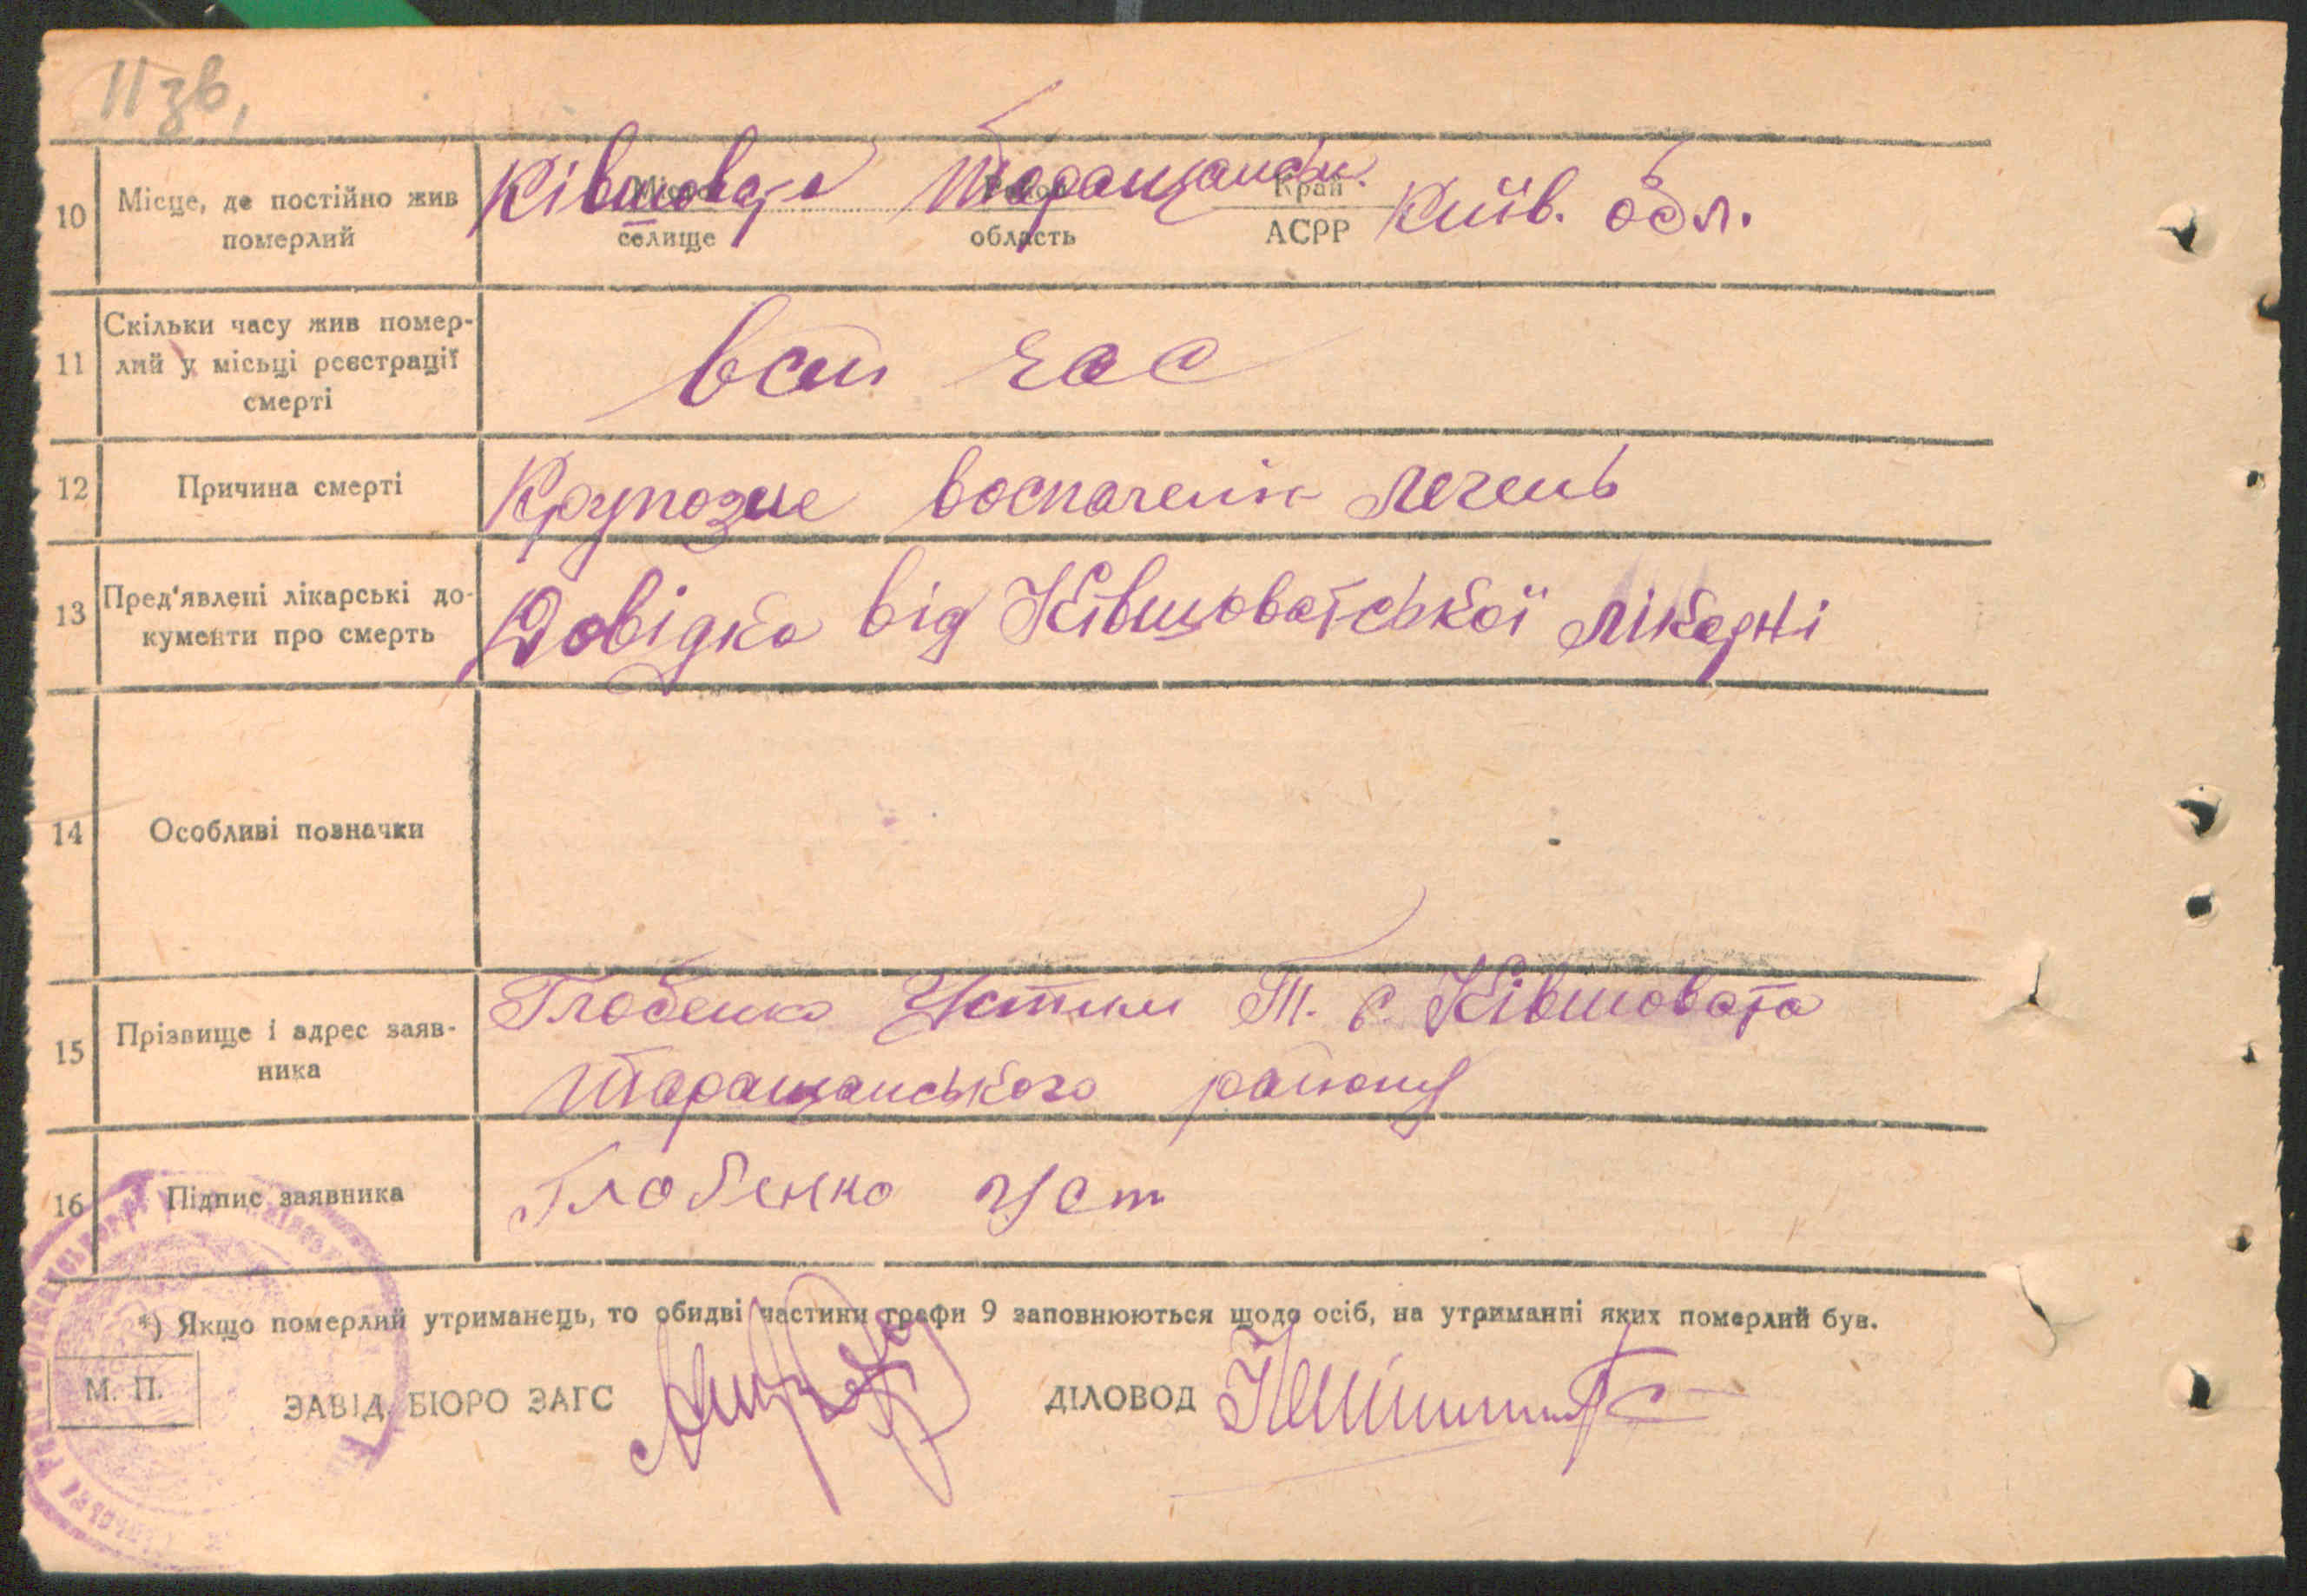 11 зв,
10 Місце, де постійно жив померлий
Ківшовата Таращанськ. Київ. обл.
Місто Район Край
селище область АСРР
11 Скільки часу жив помер-
лий у місьці реєстрації
смерті
всій час
12 Причина смерті
Крупозне воспаленія легень
13 Пред'явлені лікарські до-
кументи про смерть
Довідка від Ківшоватської лікарні
14 Особливі позначки
15 Прізвище і адрес заяв-
ника
Глобенко Устим Т. с. Ківшовата
Таращанського району
16 Підпис заявника
Глобенко Уст
*) Якщо померлий утриманець, то обидві частини графи 9 заповнюються щодо осіб, на утриманні яких померлий був.
М. П.
ЗАВІД. БЮРО ЗАГС
ДІЛОВОД